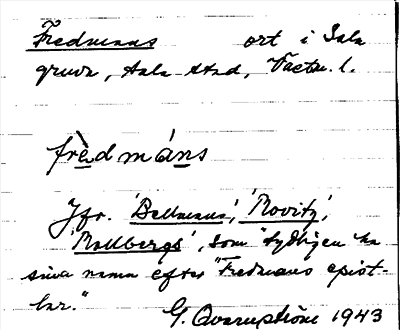 Fredmans ort i Sala
gruva, Sala stad, Västm. l.
frèdmáns
Jfr. 'Bellmans', 'Movitz',
'Mollbergs', som "tydligen ha
sina namn efter "Fredmans epist-
lar."
G. Qvarnström 1943